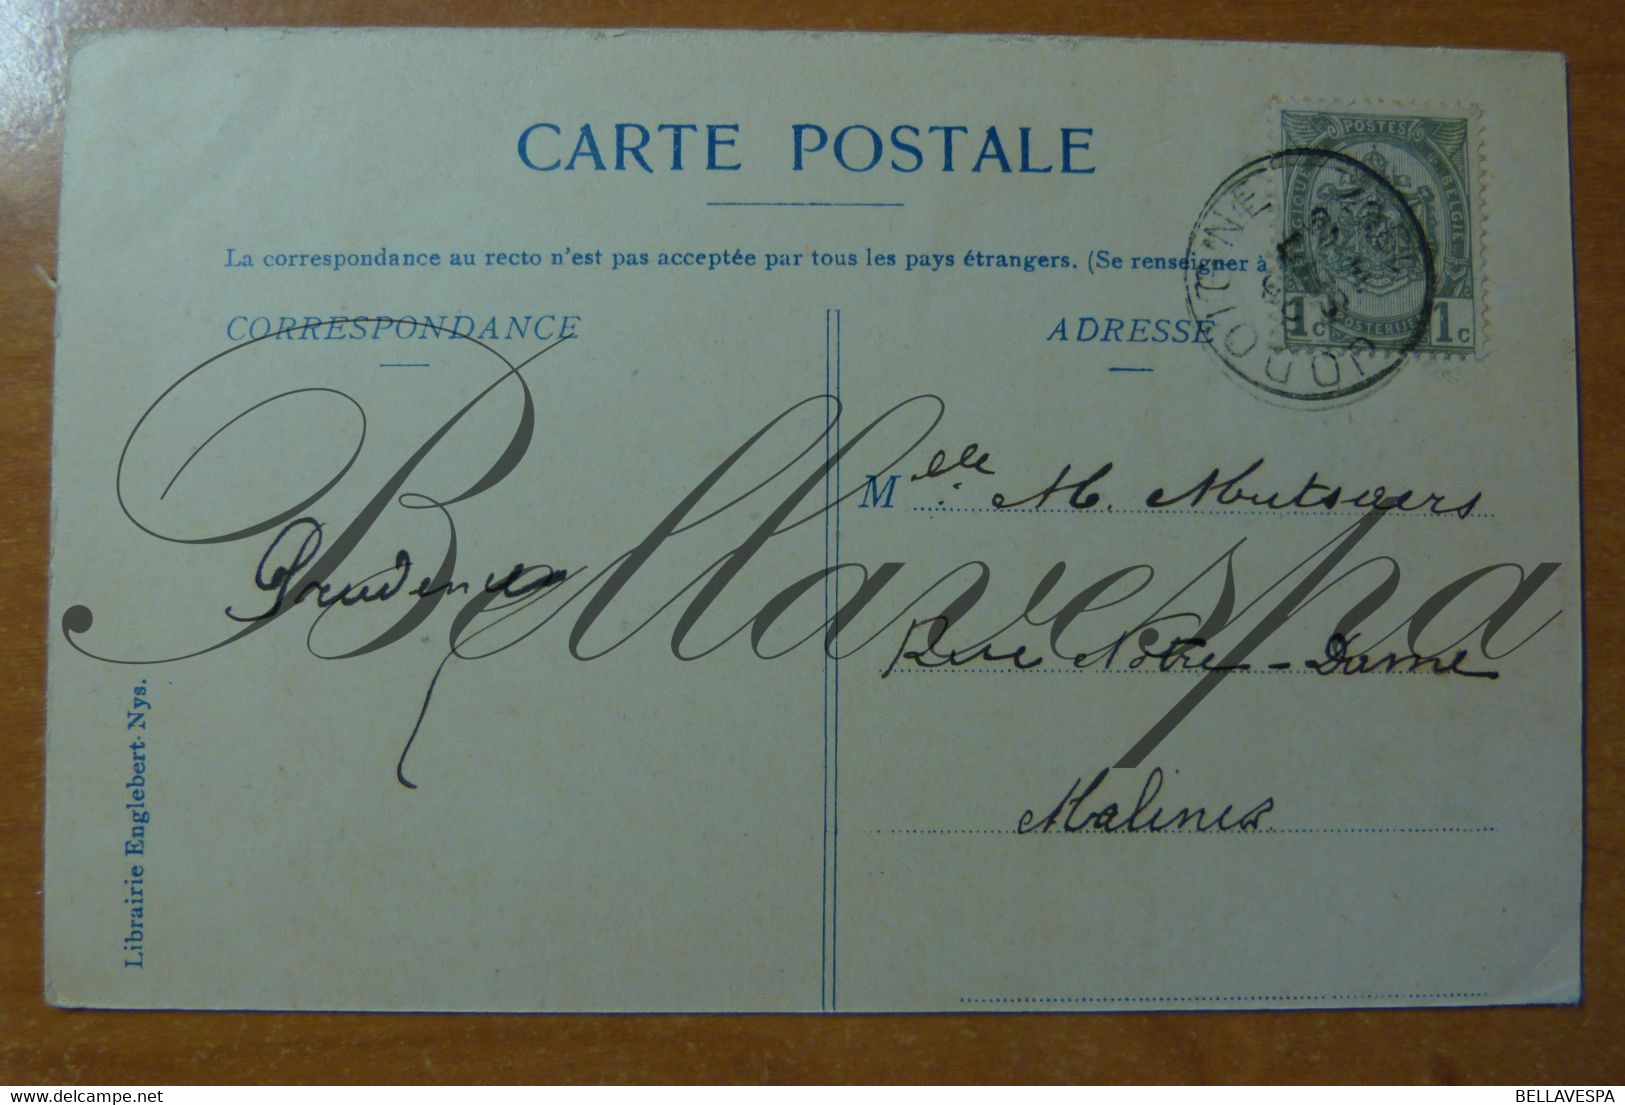 CARTE POSTALE
La correspondance au recto n'est pas acceptée par tous les pays étrangers. (Se renseigner à
CORRESPONDANCE
ADRESSE
POSTES
BELGIQUE BELGIE
POSTERIJEN
1c 1c
JODOIGNE
Mlle M. Mutsaers
Prudence
Rue Notre-Dame
Malines
Librairie Englebert-Nys.
Bellavespa
delcampe.net
BELLAVESPA